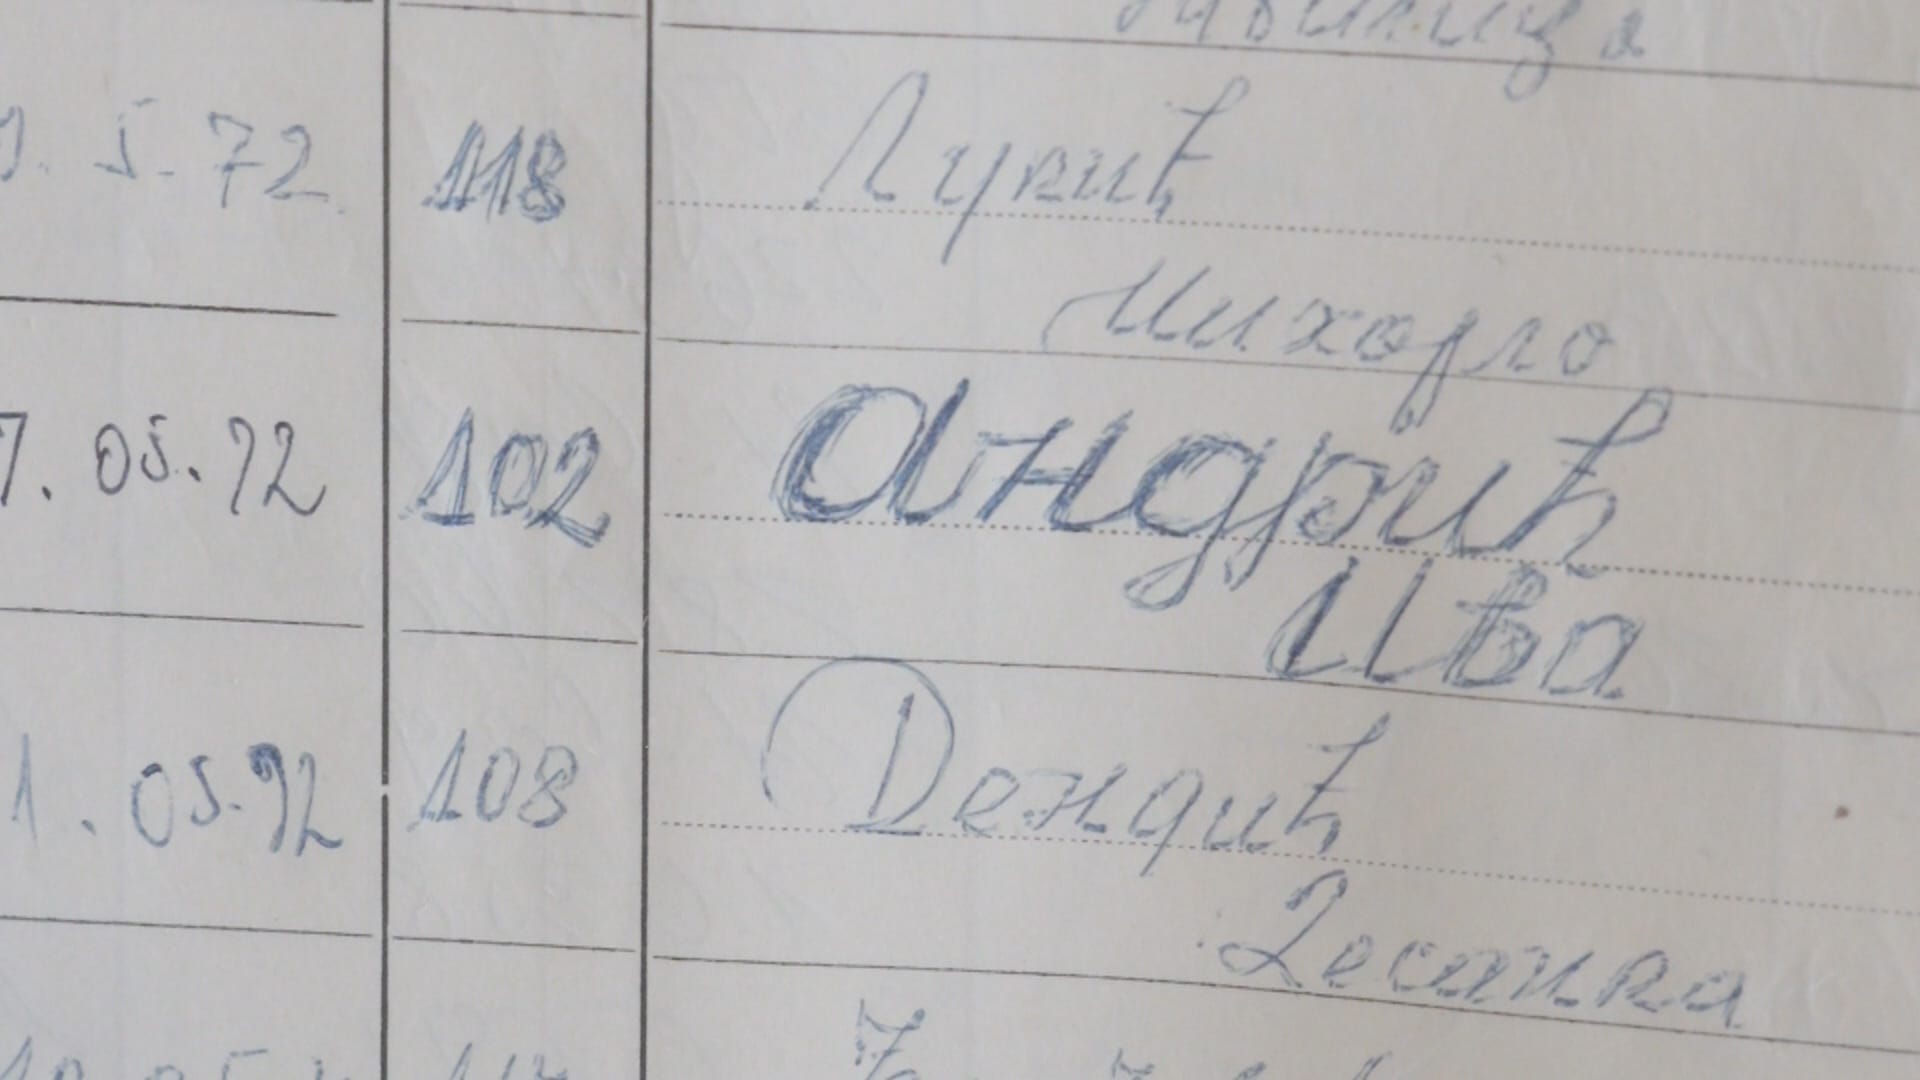 5.72 118 Лукић
Михорло
7.05.92 102 Андрић
Ива
1.05.92 108 Дендић
Десанка